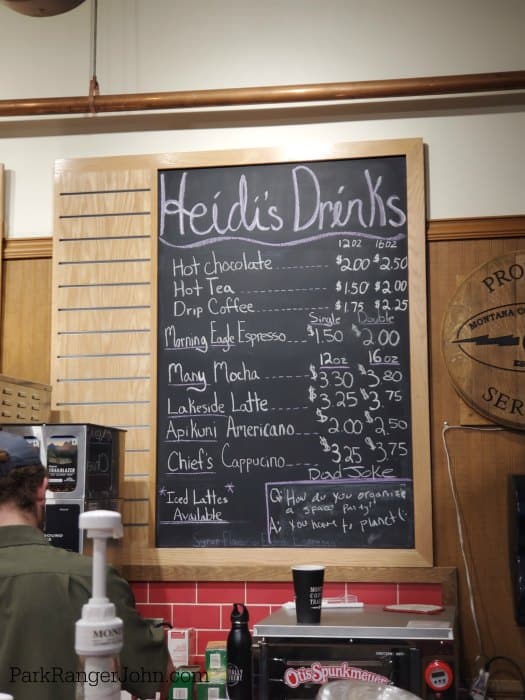 Heidi's Drinks
12oz 16oz
Hot chocolate $2.00 $2.50
Hot Tea $1.50 $2.00
Drip Coffee $1.75 $2.25
Single Double
Morning Eagle Espresso $1.50 $2.00
12oz 16oz
Many Mocha $3.30 $3.80
Lakeside Latte $3.25 $3.75
Apikuni Americano $2.00 $2.50
Chief's Cappucino $3.25 $3.75
Dad Joke
*Iced Lattes*
Available
Q: How do you organize
a space party?
A: You have to planet!
PRO
MONTANA
SER
TRAILBLAZER
MON
Otis Spunkmeyer
ParkRangerJohn.com